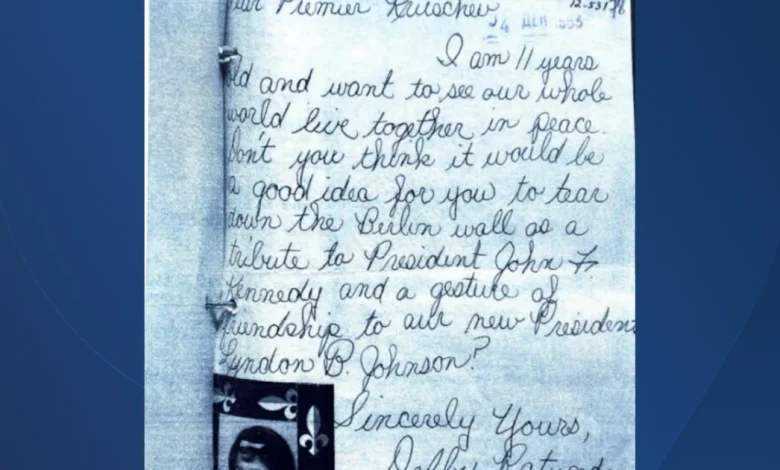 Premier
12-531
ДЕК
I am 11 years
old and want to see our whole
world live together in peace.
Don't you think it would be
a good idea for you to tear
down the Berlin wall as a
tribute to President John F.
Kennedy and a gesture of
friendship to our new President
Lyndon B. Johnson?
Sincerely Yours,